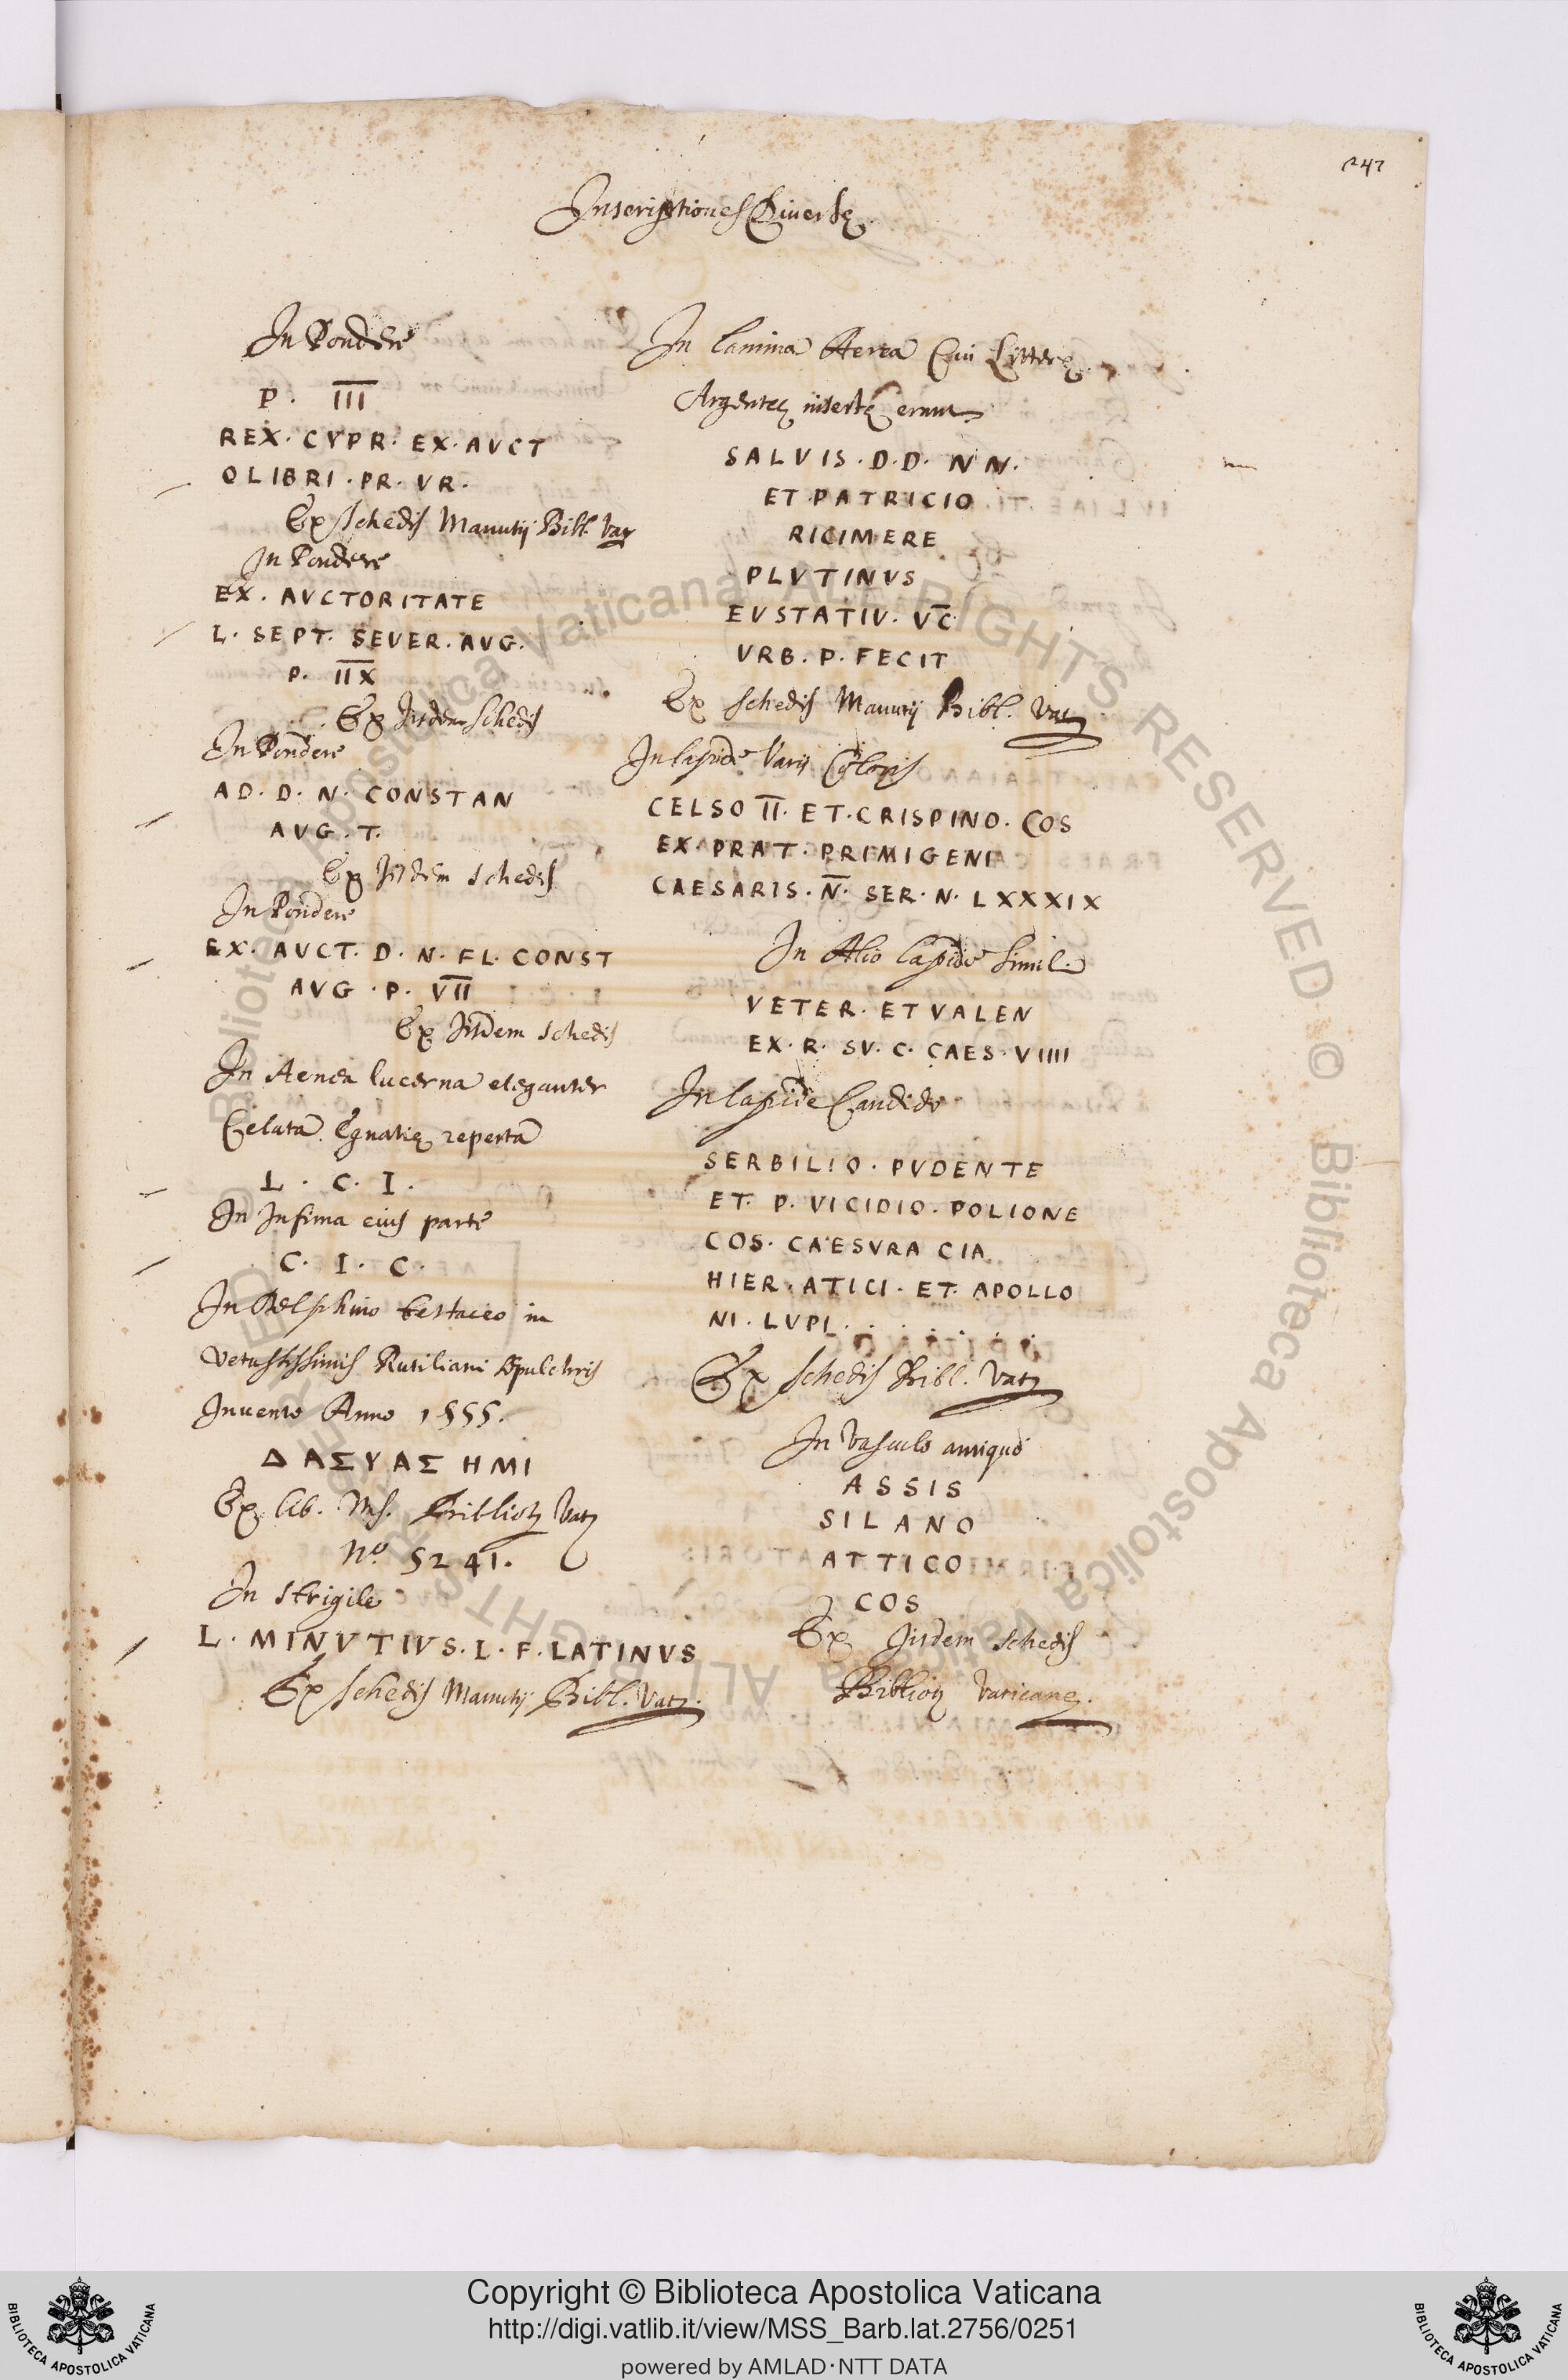 247
Inscriptiones Diuersę
In Pondere
P. III
REX. CVPR. EX. AVCT
OLIBRI. PR. VR.
Ex schedis Manutij Bibl. Vat
In Pondere
EX. AVCTORITATE
L. SEPT. SEVER. AVG.
P. IIX
Ex Jisdem schedis
In Pondere
AD. D. N. CONSTAN
AVG. T.
Ex Jisdem schedis
In Pondere
EX. AVCT. D. N. FL. CONST
AVG. P. VII
Ex Jisdem schedis
In Aenea lucerna eleganter
Celata Egnatię reperta
L. C. I.
In Infima eius parte
C. I. C.
In Delphino testaceo in
vetustissimis Rutiliani sepulchris
Inuento Anno 1555.
ΔΑΣΥΑΣ ΗΜΙ
Ex lib. Ms. Biblioț Vat
No. 5241.
In strigile
L. MINVTIVS. L. F. LATINVS
Ex schedis Manutij Bibl. Vat.
In lamina Aerea Cui Litterę
Argenteę insertę erant
SALVIS. D. D. NN.
ET PATRICIO
RICIMERE
PLVTINVS
EVSTATIV. VC
VRB. P. FECIT
Ex schedis Manutij Bibl. Vat
In lapide Varij Coloris
CELSO II. ET. CRISPINO. COS
EX. PRAT. PRIMIGENI
CAESARIS. N̅. SER. N. LXXXIX
In Alio lapide simil.
VETER. ET VALEN
EX. R. SV. C. CAES. VIIII
In lapide Candido
SERBILIO. PVDENTE
ET. P. VICIDIO. POLIONE
COS. CAESVRA CIA
HIER. ATICI. ET. APOLLO
NI. LVPI. . . . . . .
Ex schedis Bibl. Vat
In Vasculo antiquo
ASSIS
SILANO
ATTICO
COS
Ex Jisdem schedis
Biblioț Vaticanę.
Copyright © Biblioteca Apostolica Vaticana
http://digi.vatlib.it/view/MSS_Barb.lat.2756/0251
powered by AMLAD·NTT DATA
BIBLIOTECA APOSTOLICA VATICANA
BIBLIOTECA APOSTOLICA VATICANA